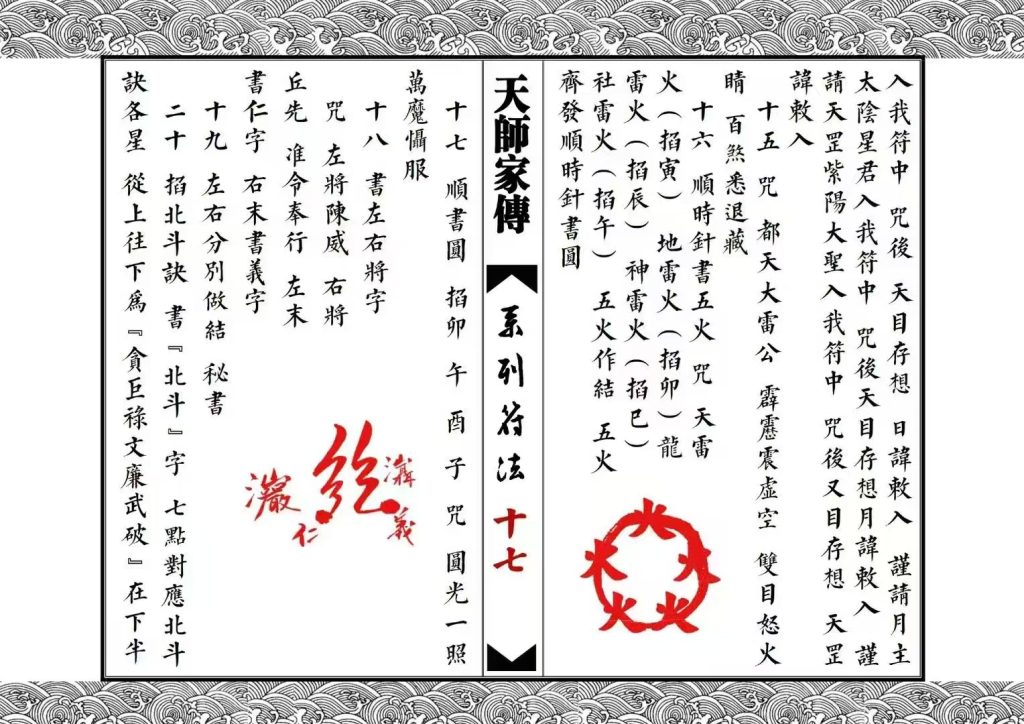 入我符中 咒後 天目存想 日諱敕入 謹請月主
太陰星君入我符中 咒後天目存想月諱敕入 謹
請天罡紫陽大聖入我符中 咒後又目存想 天罡
諱敕入
十五 咒 都天大雷公 霹靂震虛空 雙目怒火
睛 百煞悉退藏
十六 順時針書五火 咒 天雷
火（掐寅） 地雷火（掐卯）龍
雷火（掐辰） 神雷火（掐巳）
社雷火（掐午） 五火作結 五火
齊發順時針書圓
火
火
火
火
火
天師家傳
系列符法
十七
十七 順書圓 掐卯 午 酉 子 咒 圓光一照
萬魔懾服
十八 書左右將字
咒 左將陳威 右將
丘先 准令奉行 左末
書仁字 右末書義字
十九 左右分別做結 秘書
二十 掐北斗訣 書『北斗』字 七點對應北斗
訣各星 從上往下爲『貪巨祿文廉武破』在下半
義
仁